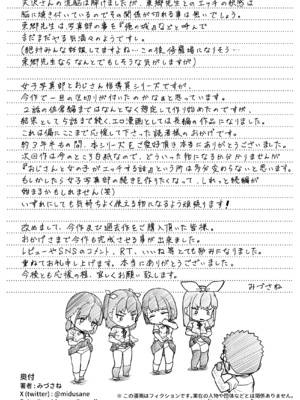 天沢さんの洗脳は解けましたが、東郷先生とのエッチの快感は
脳に焼き付いているのでその関係が切れる事は無いでしょう。
東郷先生は写真部の事を『俺の城』などと呼んで
まだまだやる気満々のようですし。
女子写真部とおじさん指導員シリーズですが、
今作で一旦の区切りが付いたのかなぁと思っています。
2話の後半編まではなんとなく想定して作り始めたのですが、
結果としてら話まで続くエロ漫画としては長編の作品になりました。
これは偏にここまで応援して下さった読者様のおかげです。
約3年半もの間、本シリーズをご愛好頂き本当にありがとうございました。
次回作は今のところ白紙なので、どういった物になるか分かりませんが
『おじさんと女の子がエッチする話』という所は多分変わらないと思います。
もしかしたら女子写真部の続きを作りたくなって、しれっと続編が
始まるかもしれません(笑)
いずれにしても気持ちよく使える物になるよう頑張ります!
改めまして、今作及び過去作をご購入頂いた皆様。
おかげさまで今作も完成させる事が出来ました。
レビューやSNSのコメント、RT、いいね等とても励みになりました。
重ねてお礼申し上げます。本当にありがとうございました。
今後とも応援の程、宜しくお願い致します。
みづさね
奥付
著者:みづさね
X(twitter):@midusane
※この漫画はフィクションです。実在の人物や団体などとは関係ありません。